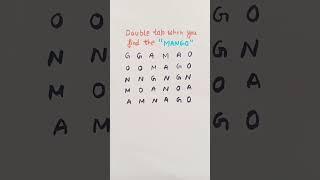 Double tab when you
find the "MANGO"
G G A M A O
O O M A G O
N N G N G N
M O A N O A
A M N A G O